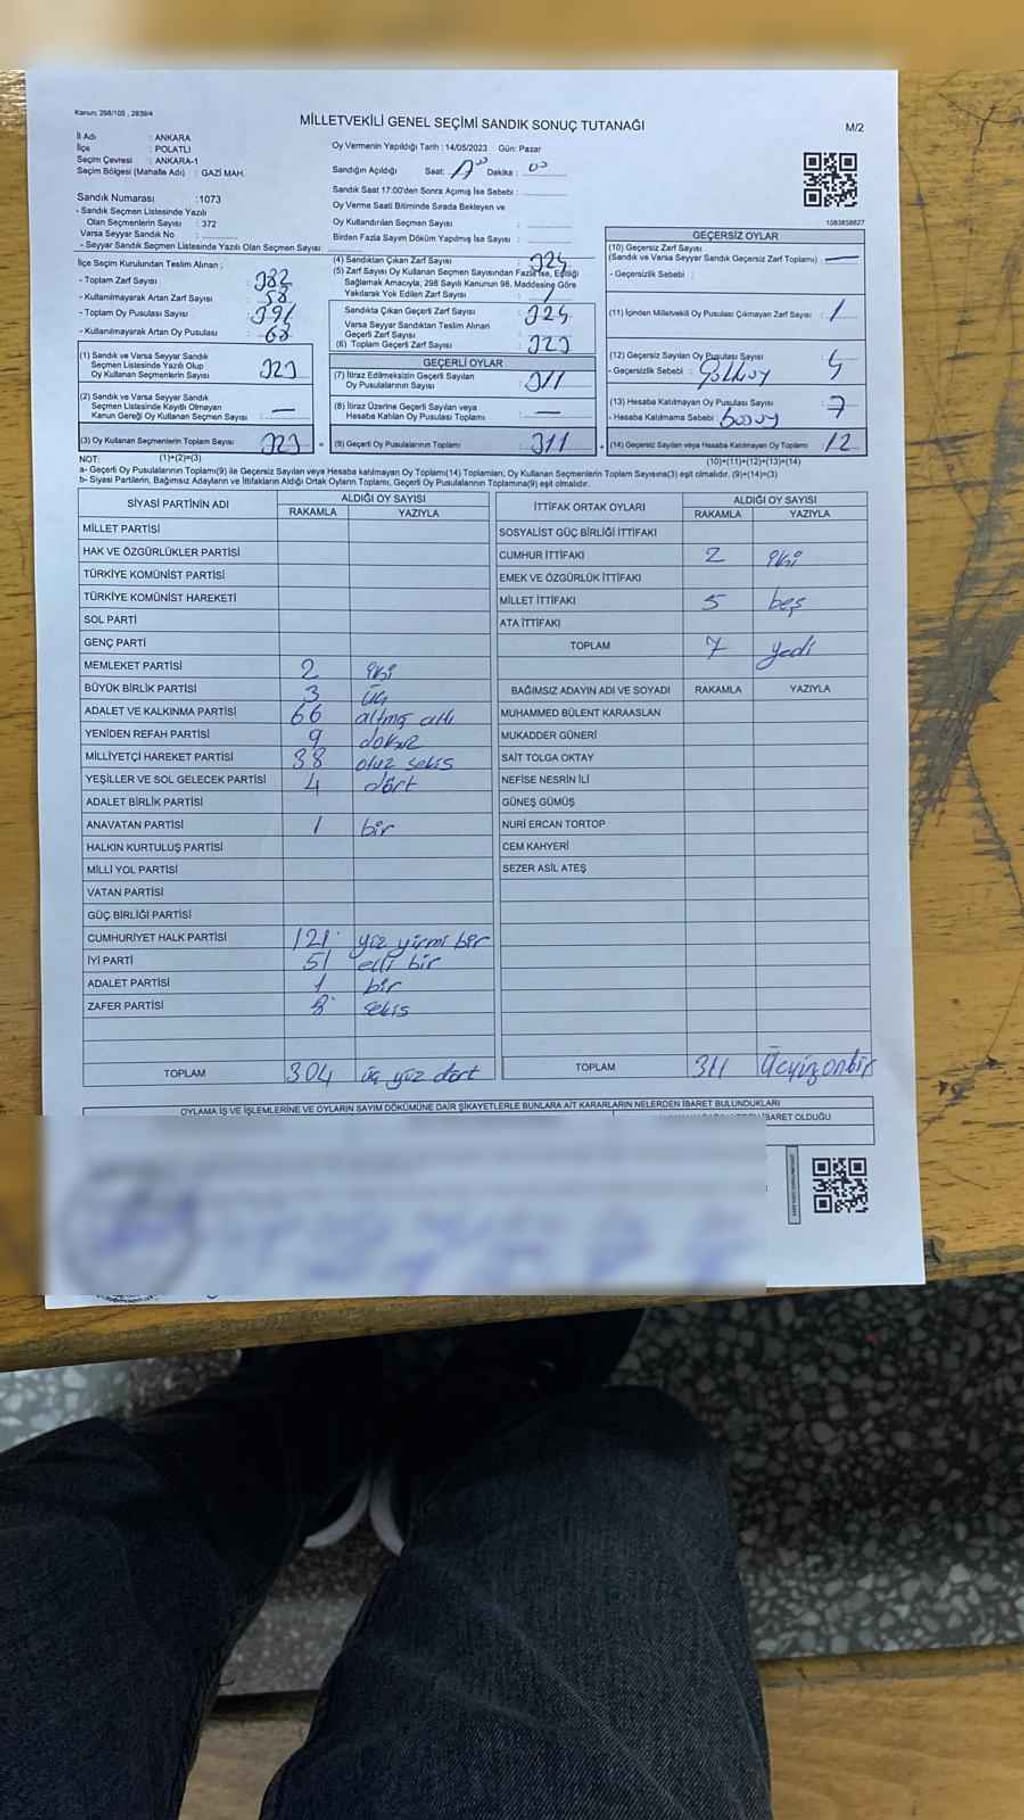 Kanun: 298/105 , 2839/4
MİLLETVEKİLİ GENEL SEÇİMİ SANDIK SONUÇ TUTANAĞI
M/2
İl Adı : ANKARA
İlçe : POLATLI
Seçim Çevresi : ANKARA-1
Seçim Bölgesi (Mahalle Adı) : GAZİ MAH.
Sandık Numarası :1073
- Sandık Seçmen Listesinde Yazılı
Olan Seçmenlerin Sayısı : 372
Varsa Seyyar Sandık No :
- Seyyar Sandık Seçmen Listesinde Yazılı Olan Seçmen Sayısı :
Oy Vermenin Yapıldığı Tarih : 14/05/2023 Gün: Pazar
Sandığın Açıldığı Saat: Dakika : 00
Sandık Saat 17:00'den Sonra Açılmış İse Sebebi :
Oy Verme Saati Bitiminde Sırada Bekleyen ve
Oy Kullandırılan Seçmen Sayısı :
Birden Fazla Sayım Döküm Yapılmış İse Sayısı :
1083858827
İlçe Seçim Kurulundan Teslim Alınan :
- Toplam Zarf Sayısı : 382
- Kullanılmayarak Artan Zarf Sayısı : 58
- Toplam Oy Pusulası Sayısı : 391
- Kullanılmayarak Artan Oy Pusulası : 68
(1) Sandık ve Varsa Seyyar Sandık
Seçmen Listesinde Yazılı Olup
Oy Kullanan Seçmenlerin Sayısı : 323
(2) Sandık ve Varsa Seyyar Sandık
Seçmen Listesinde Kayıtlı Olmayan
Kanun Gereği Oy Kullanan Seçmen Sayısı : —
(3) Oy Kullanan Seçmenlerin Toplam Sayısı : 323
(4) Sandıktan Çıkan Zarf Sayısı :
(5) Zarf Sayısı Oy Kullanan Seçmen Sayısından Fazla İse, Eşitliği
Sağlamak Amacıyla, 298 Sayılı Kanunun 98. Maddesine Göre
Yakılarak Yok Edilen Zarf Sayısı :
Sandıkta Çıkan Geçerli Zarf Sayısı :
Varsa Seyyar Sandıktan Teslim Alınan
Geçerli Zarf Sayısı :
(6) Toplam Geçerli Zarf Sayısı : 323
GEÇERLİ OYLAR
(7) İtiraz Edilmeksizin Geçerli Sayılan
Oy Pusulalarının Sayısı : 311
(8) İtiraz Üzerine Geçerli Sayılan veya
Hesaba Katılan Oy Pusulası Toplamı : —
(9) Geçerli Oy Pusulalarının Toplamı : 311
GEÇERSİZ OYLAR
(10) Geçersiz Zarf Sayısı
(Sandık ve Varsa Seyyar Sandık Geçersiz Zarf Toplamı) : —
- Geçersizlik Sebebi :
(11) İçinden Milletvekili Oy Pusulası Çıkmayan Zarf Sayısı : 1
(12) Geçersiz Sayılan Oy Pusulası Sayısı : 4
- Geçersizlik Sebebi :
(13) Hesaba Katılmayan Oy Pusulası Sayısı : 7
- Hesaba Katılmama Sebebi :
(14) Geçersiz Sayılan veya Hesaba Katılmayan Oy Toplamı : 12
NOT: (1)+(2)=(3)
(10)+(11)+(12)+(13)=(14)
a- Geçerli Oy Pusulalarının Toplamı(9) ile Geçersiz Sayılan veya Hesaba katılmayan Oy Toplamı(14) Toplamları, Oy Kullanan Seçmenlerin Toplam Sayısına(3) eşit olmalıdır. (9)+(14)=(3)
b- Siyasi Partilerin, Bağımsız Adayların ve İttifakların Aldığı Ortak Oyların Toplamı, Geçerli Oy Pusulalarının Toplamına(9) eşit olmalıdır.
SİYASİ PARTİNİN ADI ALDIĞI OY SAYISI
RAKAMLA YAZIYLA
MİLLET PARTİSİ
HAK VE ÖZGÜRLÜKLER PARTİSİ
TÜRKİYE KOMÜNİST PARTİSİ
TÜRKİYE KOMÜNİST HAREKETİ
SOL PARTİ
GENÇ PARTİ
MEMLEKET PARTİSİ 2 iki
BÜYÜK BİRLİK PARTİSİ 3 üç
ADALET VE KALKINMA PARTİSİ 66 altmış altı
YENİDEN REFAH PARTİSİ 9 dokuz
MİLLİYETÇİ HAREKET PARTİSİ 38 otuz sekis
YEŞİLLER VE SOL GELECEK PARTİSİ 4 dört
ADALET BİRLİK PARTİSİ
ANAVATAN PARTİSİ 1 bir
HALKIN KURTULUŞ PARTİSİ
MİLLİ YOL PARTİSİ
VATAN PARTİSİ
GÜÇ BİRLİĞİ PARTİSİ
CUMHURİYET HALK PARTİSİ 121 yüz yirmi bir
İYİ PARTİ 51 elli bir
ADALET PARTİSİ 1 bir
ZAFER PARTİSİ 8 sekis
TOPLAM 304 üç yüz dört
İTTİFAK ORTAK OYLARI ALDIĞI OY SAYISI
RAKAMLA YAZIYLA
SOSYALİST GÜÇ BİRLİĞİ İTTİFAKI
CUMHUR İTTİFAKI 2 iki
EMEK VE ÖZGÜRLÜK İTTİFAKI
MİLLET İTTİFAKI 5 beş
ATA İTTİFAKI
TOPLAM 7 yedi
BAĞIMSIZ ADAYIN ADI VE SOYADI RAKAMLA YAZIYLA
MUHAMMED BÜLENT KARAASLAN
MUKADDER GÜNERİ
SAİT TOLGA OKTAY
NEFİSE NESRİN İLİ
GÜNEŞ GÜMÜŞ
NURİ ERCAN TORTOP
CEM KAHYERİ
SEZER ASİL ATEŞ
TOPLAM 311 Üçyüzonbir
OYLAMA İŞ VE İŞLEMLERİNE VE OYLARIN SAYIM DÖKÜMÜNE DAİR ŞİKAYETLERLE BUNLARA AİT KARARLARIN NELERDEN İBARET BULUNDUKLARI
İBARET OLDUĞU